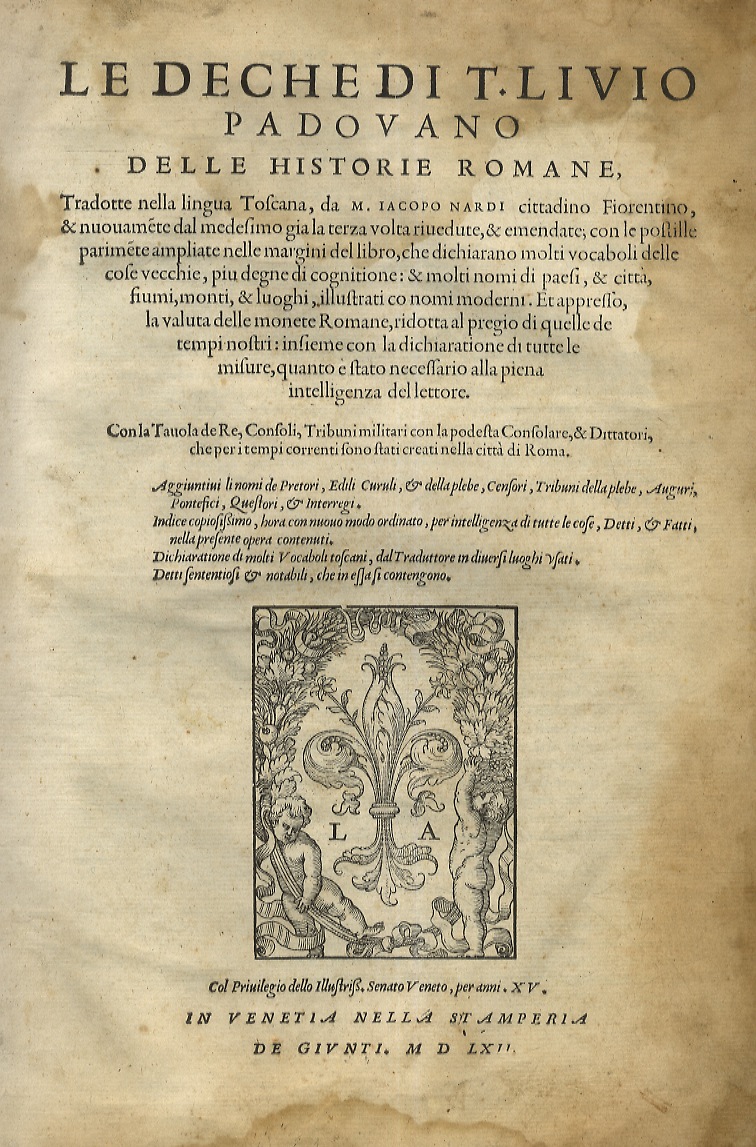 LE DECHE DI T. LIVIO
PADOVANO
DELLE HISTORIE ROMANE,
Tradotte nella lingua Toſcana, da M. IACOPO NARDI cittadino Fiorentino,
& nuouamẽte dal medeſimo gia la terza volta riuedute, & emendate; con le poſtille
parimẽte ampliate nelle margini del libro, che dichiarano molti vocaboli delle
coſe vecchie, piu degne di cognitione: & molti nomi di paeſi, & città,
fiumi, monti, & luoghi, illuſtrati co nomi moderni. Et appreſſo,
la valuta delle monete Romane, ridotta al pregio di quelle de
tempi noſtri: inſieme con la dichiaratione di tutte le
miſure, quanto è ſtato neceſſario alla piena
intelligenza del lettore.
Con la Tauola de Re, Conſoli, Tribuni militari con la podeſta Conſolare, & Dittatori,
che per i tempi correnti ſono ſtati creati nella città di Roma.
Aggiuntiui li nomi de Pretori, Edili Curuli, & della plebe, Cenſori, Tribuni della plebe, Auguri,
Pontefici, Queſtori, & Interregi.
Indice copioſiſſimo, hora con nuouo modo ordinato, per intelligenza di tutte le coſe, Detti, & Fatti,
nella preſente opera contenuti.
Dichiaratione di molti Vocaboli toſcani, dal Traduttore in diuerſi luoghi vſati.
Detti ſententioſi & notabili, che in eſſa ſi contengono.
L A
Col Priuilegio dello Illuſtriſſ. Senato Veneto, per anni. XV.
IN VENETIA NELLA STAMPERIA
DE GIVNTI. M D LXII.